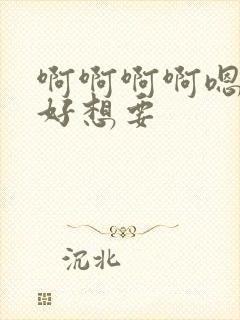 啊啊啊啊嗯
好想要
沉北